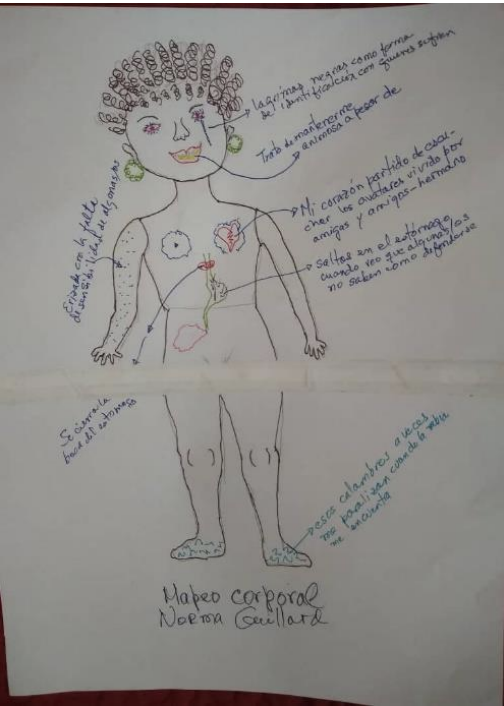 lagrimas negras como forma
de identificacion con quienes sufren
Trato de mantenerme
animosa a pesar de
Mi corazón partido de escu-
char los avatares vivido por
amigas y amigos-hermano
Saltos en el estómago
cuando veo que algunas/os
no saben como defenderse
Erizada con la falta
de sensibilidad de algunas/os
Se cierra la
boca del estomago
esos calambres a veces
me paralizan cuando la rabia
me encuentra
Mapeo corporal
Norma Guillard